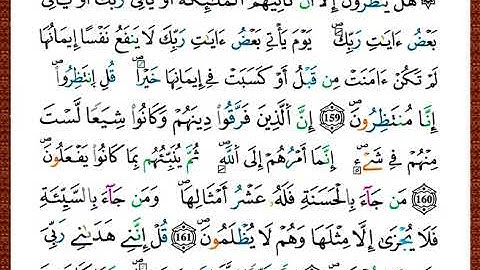 هَلْ يَنظُرُونَ إِلَّا أَن تَأْتِيَهُمُ ٱلْمَلَٰٓئِكَةُ أَوْ يَأْتِىَ رَبُّكَ أَوْ يَأْتِىَ
بَعْضُ ءَايَٰتِ رَبِّكَ ۖ يَوْمَ يَأْتِى بَعْضُ ءَايَٰتِ رَبِّكَ لَا يَنفَعُ نَفْسًا إِيمَٰنُهَا
لَمْ تَكُنْ ءَامَنَتْ مِن قَبْلُ أَوْ كَسَبَتْ فِىٓ إِيمَٰنِهَا خَيْرًا ۖ قُلِ ٱنتَظِرُوٓا۟
إِنَّا مُنتَظِرُونَ ۖ 159 إِنَّ ٱلَّذِينَ فَرَّقُوا۟ دِينَهُمْ وَكَانُوا۟ شِيَعًا لَّسْتَ
مِنْهُمْ فِى شَىْءٍ ۖ إِنَّمَآ أَمْرُهُمْ إِلَى ٱللَّهِ ۖ ثُمَّ يُنَبِّئُهُم بِمَا كَانُوا۟ يَفْعَلُونَ ۖ
160 مَن جَآءَ بِٱلْحَسَنَةِ فَلَهُۥ عَشْرُ أَمْثَالِهَا ۖ وَمَن جَآءَ بِٱلسَّيِّئَةِ
فَلَا يُجْزَىٰٓ إِلَّا مِثْلَهَا وَهُمْ لَا يُظْلَمُونَ ۖ 161 قُلْ إِنَّنِى هَدَىٰنِى رَبِّىَ